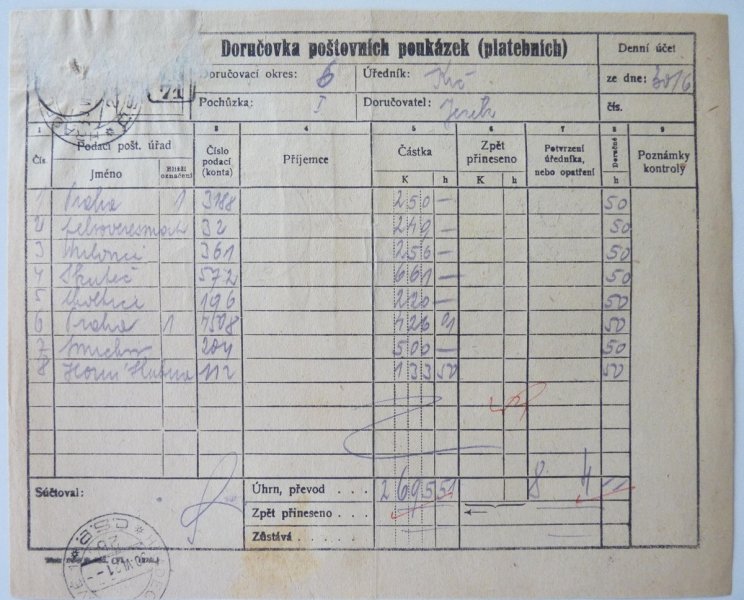 Doručovka poštovních poukázek (platebních)
Denní účet
Doručovací okres: 6
Úředník:
ze dne: 30/6
Pochůzka: I
Doručovatel:
čís.
71
1 3 4 5 6 7 8 9
Čís
Podací pošt. úřad
Jméno
Bližší označení
Číslo podací (konta)
Příjemce
Částka
K h
Zpět přineseno
K h
Potvrzení úředníka, nebo opatření
Doručné
h
Poznámky kontroly
1 Praha 1 3188 250 — 50
2 32 249 — 50
3 361 256 — 50
4 Skuteč 572 661 — 50
5 196 220 — 50
6 Praha 1 426 91 50
7 204 500 — 50
8 Horní 112 133 50 50
Súčtoval:
Úhrn, převod . . . . 2695 8 4 —
Zpět přineseno . . .
Zůstává . . .